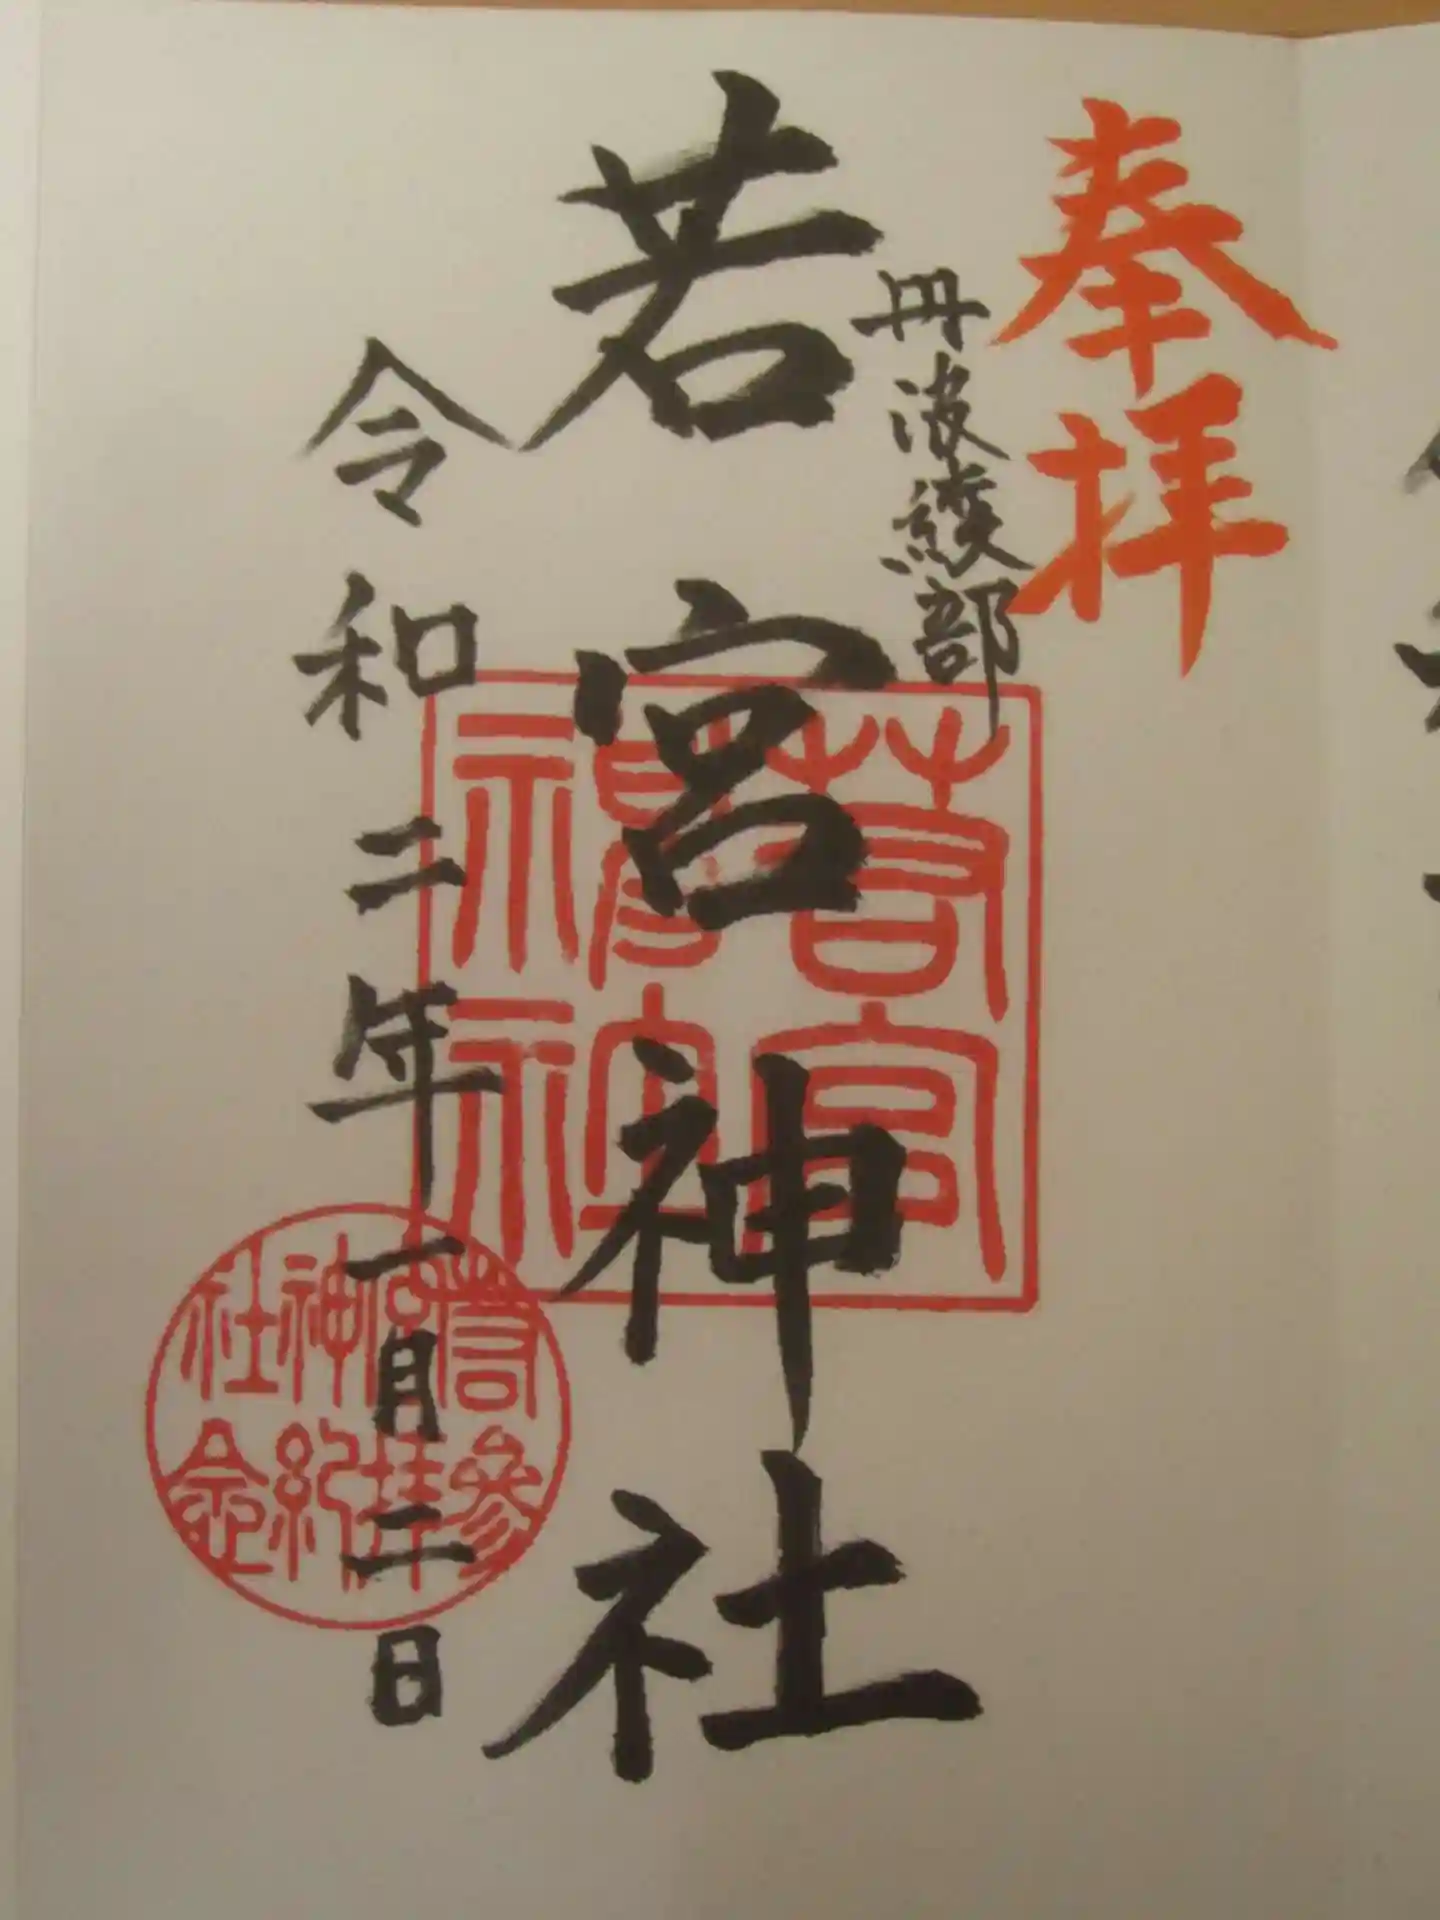 奉拝
丹波綾部
若宮神社
令和二年一月二日
若宮
神社
若宮神社
参拝紀念